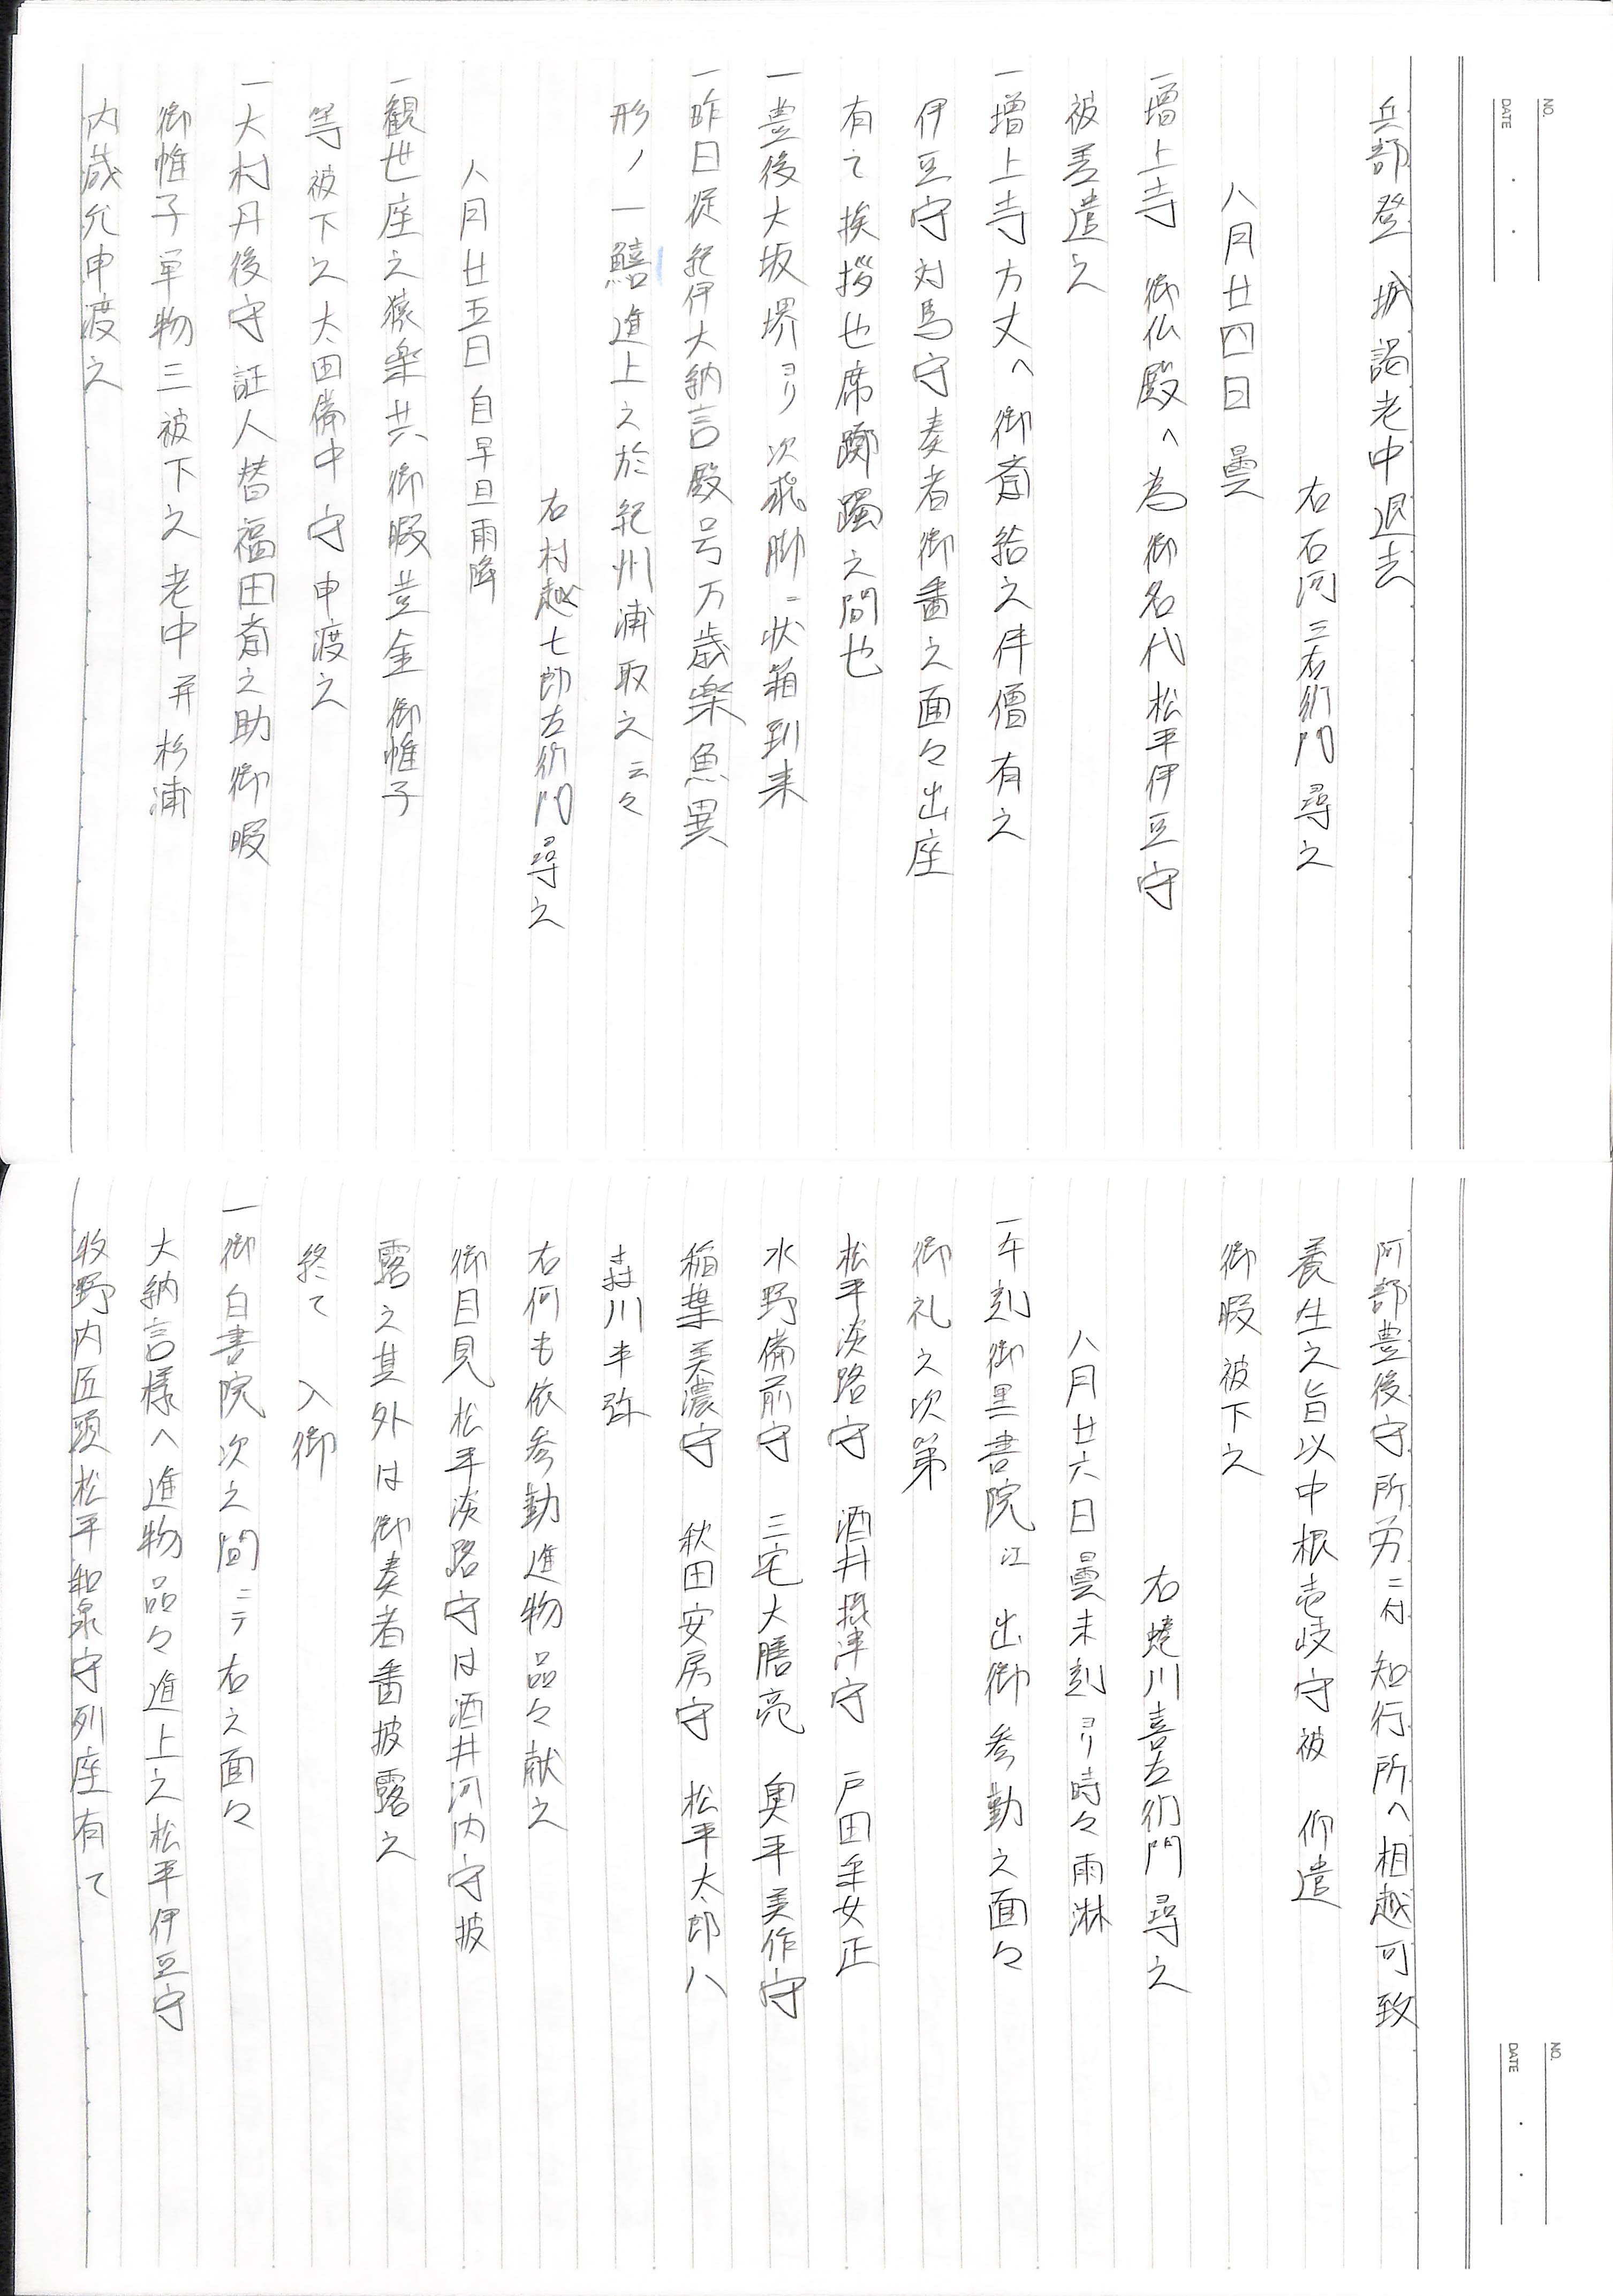 NO.
DATE
兵部登 城謁老中退去
右石河三右衛門尋之
八月廿四日 曇
一増上寺 御仏殿へ為御名代松平伊豆守
被差遣之
一増上寺方丈へ御斎給之伴僧有之
伊豆守対馬守奏者御番之面々出座
有て挨拶也席躑躅之間也
一豊後大坂堺ヨリ次飛脚ニ状箱到来
一昨日従紀伊大納言殿号万歳楽魚異
形ノ一鱚進上之於紀州浦取之云々
右村越七郎左衛門尋之
八月廿五日自早旦雨降
一観世座之猿楽共御暇並金御帷子
等被下之太田備中守申渡之
一大村丹後守証人替福田斎之助御暇
御帷子単物三被下之老中并杉浦
内蔵允申渡之
NO.
DATE
阿部豊後守所労ニ付知行所へ相越可致
養生之旨以中根壱岐守被 仰遣
御暇被下之
右蜷川喜左衛門尋之
八月廿六日曇未刻ヨリ時々雨淋
一午刻御黒書院江 出御参勤之面々
御礼之次第
松平淡路守 酒井摂津守 戸田采女正
水野備前守 三宅大膳亮 奥平美作守
稲葉美濃守 秋田安房守 松平太郎八
森川半弥
右何も依参勤進物品々献之
御目見松平淡路守は酒井河内守披
露之其外は御奏者番披露之
終て 入御
一御白書院次之間ニテ右之面々
大納言様へ進物品々進上之松平伊豆守
牧野内匠頭松平和泉守列座有て